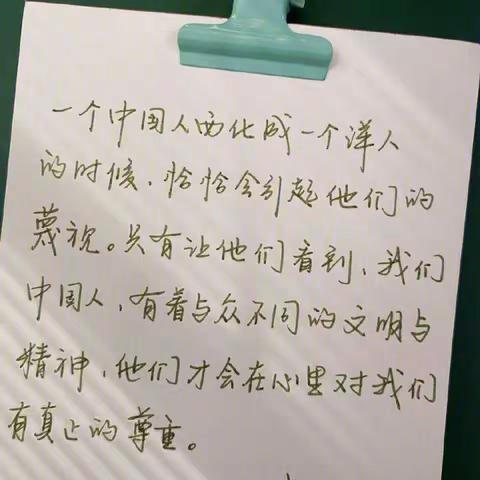 一个中国人西化成一个洋人
的时候，恰恰会引起他们的
蔑视。只有让他们看到，我们
中国人，有着与众不同的文明与
精神，他们才会在心里对我们
有真正的尊重。